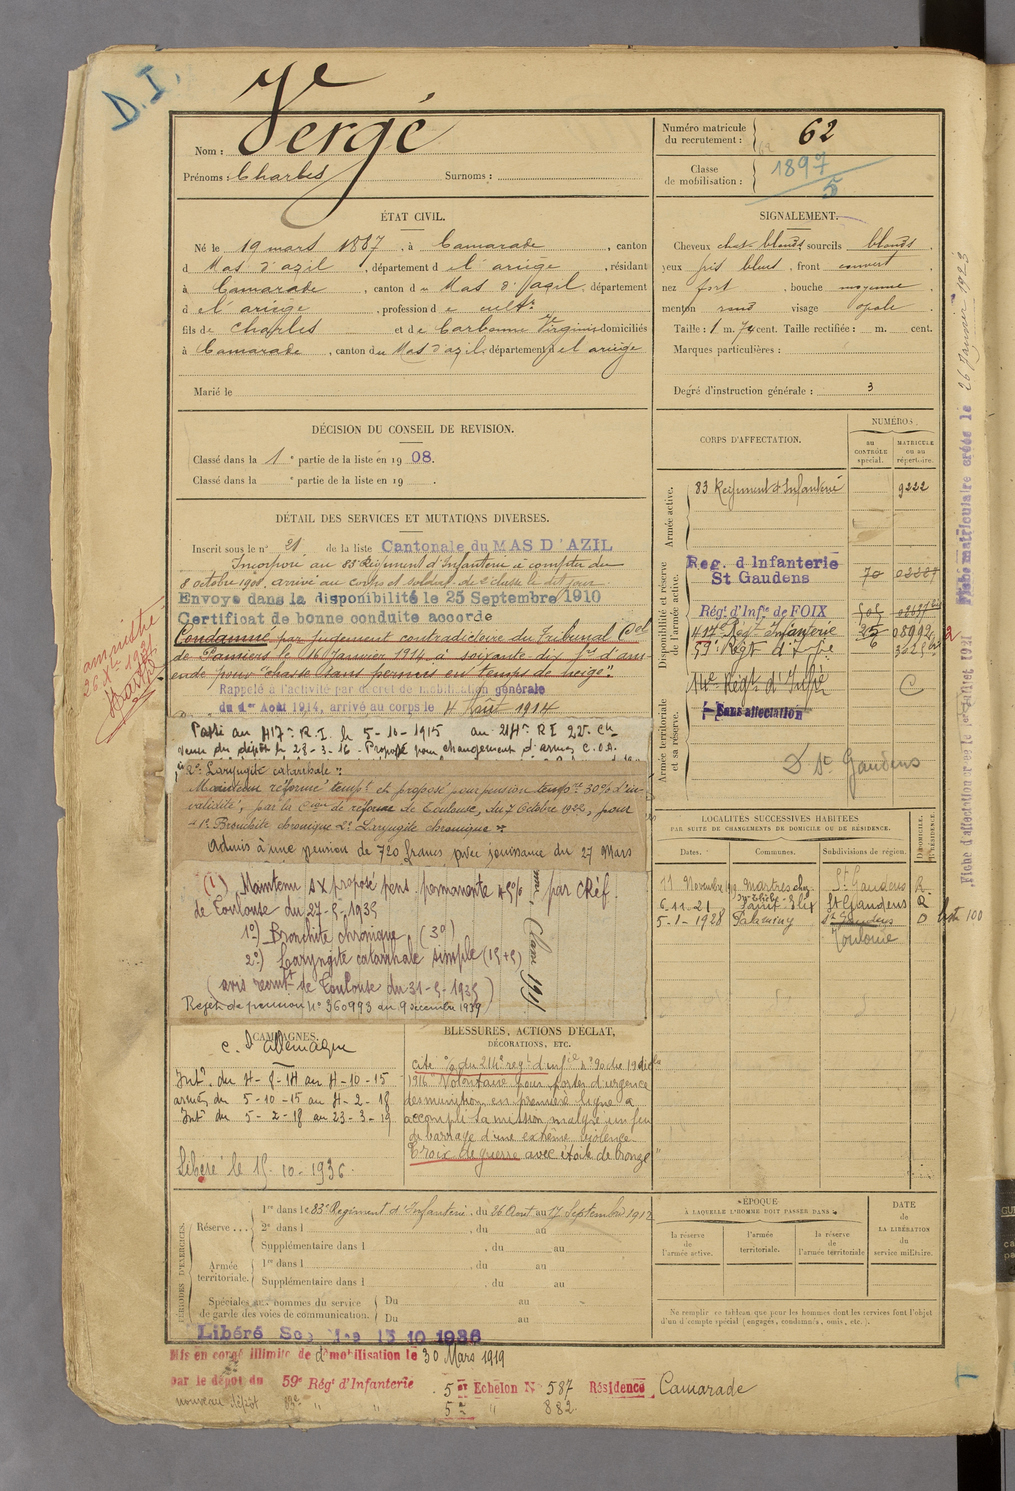 D.I.
Vergé
Nom : Vergé
Prénoms : Charles Surnoms :
Numéro matricule
du recrutement : 62
Classe
de mobilisation : 1897
5
ÉTAT CIVIL.
Né le 19 mars 1887, à Camarade, canton
d Mas d'azil, département d el ariège, résidant
à Camarade, canton du Mas d'azil, département
d el ariège, profession d e cultr
fils de Charles et de Carbonne Virginie domiciliés
à Camarade, canton du Mas d'azil, département d el ariège
Marié le
SIGNALEMENT.
Cheveux chat. blonds sourcils blonds.
yeux gris bleus, front couvert
nez fort, bouche moyenne,
menton rond visage ovale.
Taille : 1 m. 74 cent. Taille rectifiée : m. cent.
Marques particulières :
Degré d'instruction générale : 3
DÉCISION DU CONSEIL DE REVISION.
Classé dans la 1e partie de la liste en 1908.
Classé dans la e partie de la liste en 19 .
DÉTAIL DES SERVICES ET MUTATIONS DIVERSES.
Inscrit sous le n° 21 de la liste Cantonale du MAS D'AZIL
Incorporé au 83e Régiment d'Infanterie à compter du
8 octobre 1908, arrivé au corps et soldat de 2e classe le dit jour.
Envoyé dans la disponibilité le 25 Septembre 1910
Certificat de bonne conduite accordé
Condamné par jugement contradictoire du Tribunal Col
de Pamiers le 16 Janvier 1914 à soixante-dix frs d'am-
ende pour "chasse sans permis en temps de neige".
Rappelé à l'activité par décret de mobilisation générale
du 1er Août 1914, arrivé au corps le 4 Août 1914
amnistié
Passé au 417e R.I. le 5-10-1915 au 214e RI 22e Cie
venu du dépôt le 28-3-16. Proposé pour changement d'armes C.O.A.
2e Laryngite catarrhale":
Maintenu réformé tempre et proposé pour pension tempre 30% d'in-
validité, par la Cion de réforme de Toulouse, du 7 Octobre 1922, pour
"1° Bronchite chronique 2° Laryngite chronique":
Admis à une pension de 720 francs avec jouissance du 27 Mars
(1) Maintenu SX proposé pens. permanente 45% par CRéf.
de Toulouse du 27-5-1935
1°) Bronchite chronique (30)
2°) Laryngite catarrhale simple (15+5)
(avis recrutt de Toulouse du 31-5-1935)
Rejet de pension n° 360993 du 9 décembre 1935
Classe 1911
CORPS D'AFFECTATION.
NUMÉROS
au
CONTRÔLE
spécial.
MATRICULE
ou au
répertoire.
Armée active.
83 Régiment d'Infanterie 9222
Disponibilité et réserve
de l'armée active.
Reg. d'Infanterie
St Gaudens 70
Régt d'Infie de FOIX 505
417e Régt Infanterie 25 08992
59e Régt d'Infie 6
Armée territoriale
et sa réserve.
14e Régt d'Infie C
Sans affectation
D St Gaudens
LOCALITÉS SUCCESSIVES HABITÉES
PAR SUITE DE CHANGEMENTS DE DOMICILE OU DE RÉSIDENCE.
Dates. Communes. Subdivisions de région. D. DOMICILE. R. RÉSIDENCE.
St Gaudens R
6-11-21 St Gaudens R
5-1-1928 Palaminy St Gaudens D
Toulouse
CAMPAGNES.
C. D'allemagne
Intr du 4-8-14 au 4-10-15
armées du 5-10-15 au 4-2-18
Intr du 5-2-18 au 23-3-19
Libéré le 15-10-1936
BLESSURES, ACTIONS D'ÉCLAT,
DÉCORATIONS, ETC.
cité o/o du 214e regt d'infie n° 90 du 19 dec
1916 "Volontaire pour porter d'urgence
des munitions en première ligne a
accompli sa mission malgré un feu
de barrage d'une extrême violence"
Croix de guerre avec étoile de bronze
PÉRIODES D'EXERCICES.
Réserve... 1re dans le 83e Régiment d'Infanterie, du 26 Aout au 17 Septembre 1912
2e dans l , du au
Supplémentaire dans l , du au
Armée
territoriale. 1re dans l , du au
Supplémentaire dans l , du au
Spéciales aux hommes du service
de garde des voies de communication. Du au
Du au
ÉPOQUE
À LAQUELLE L'HOMME DOIT PASSER DANS
la réserve
de
l'armée active.
l'armée
territoriale.
la réserve
de
l'armée territoriale
DATE
de
LA LIBÉRATION
du
service militaire.
Ne remplir ce tableau que pour les hommes dont les services font l'objet
d'un décompte spécial (engagés, condamnés, omis, etc.).
Libéré 15 10 1936
Mis en congé illimité de démobilisation le 30 Mars 1919
par le dépôt du 59e Régt d'Infanterie. 5e Echelon N° 587 Résidence Camarade
nouveau dépôt 83e " " 5e " 882
Fiche matriculaire créée le 26 Janvier 1923